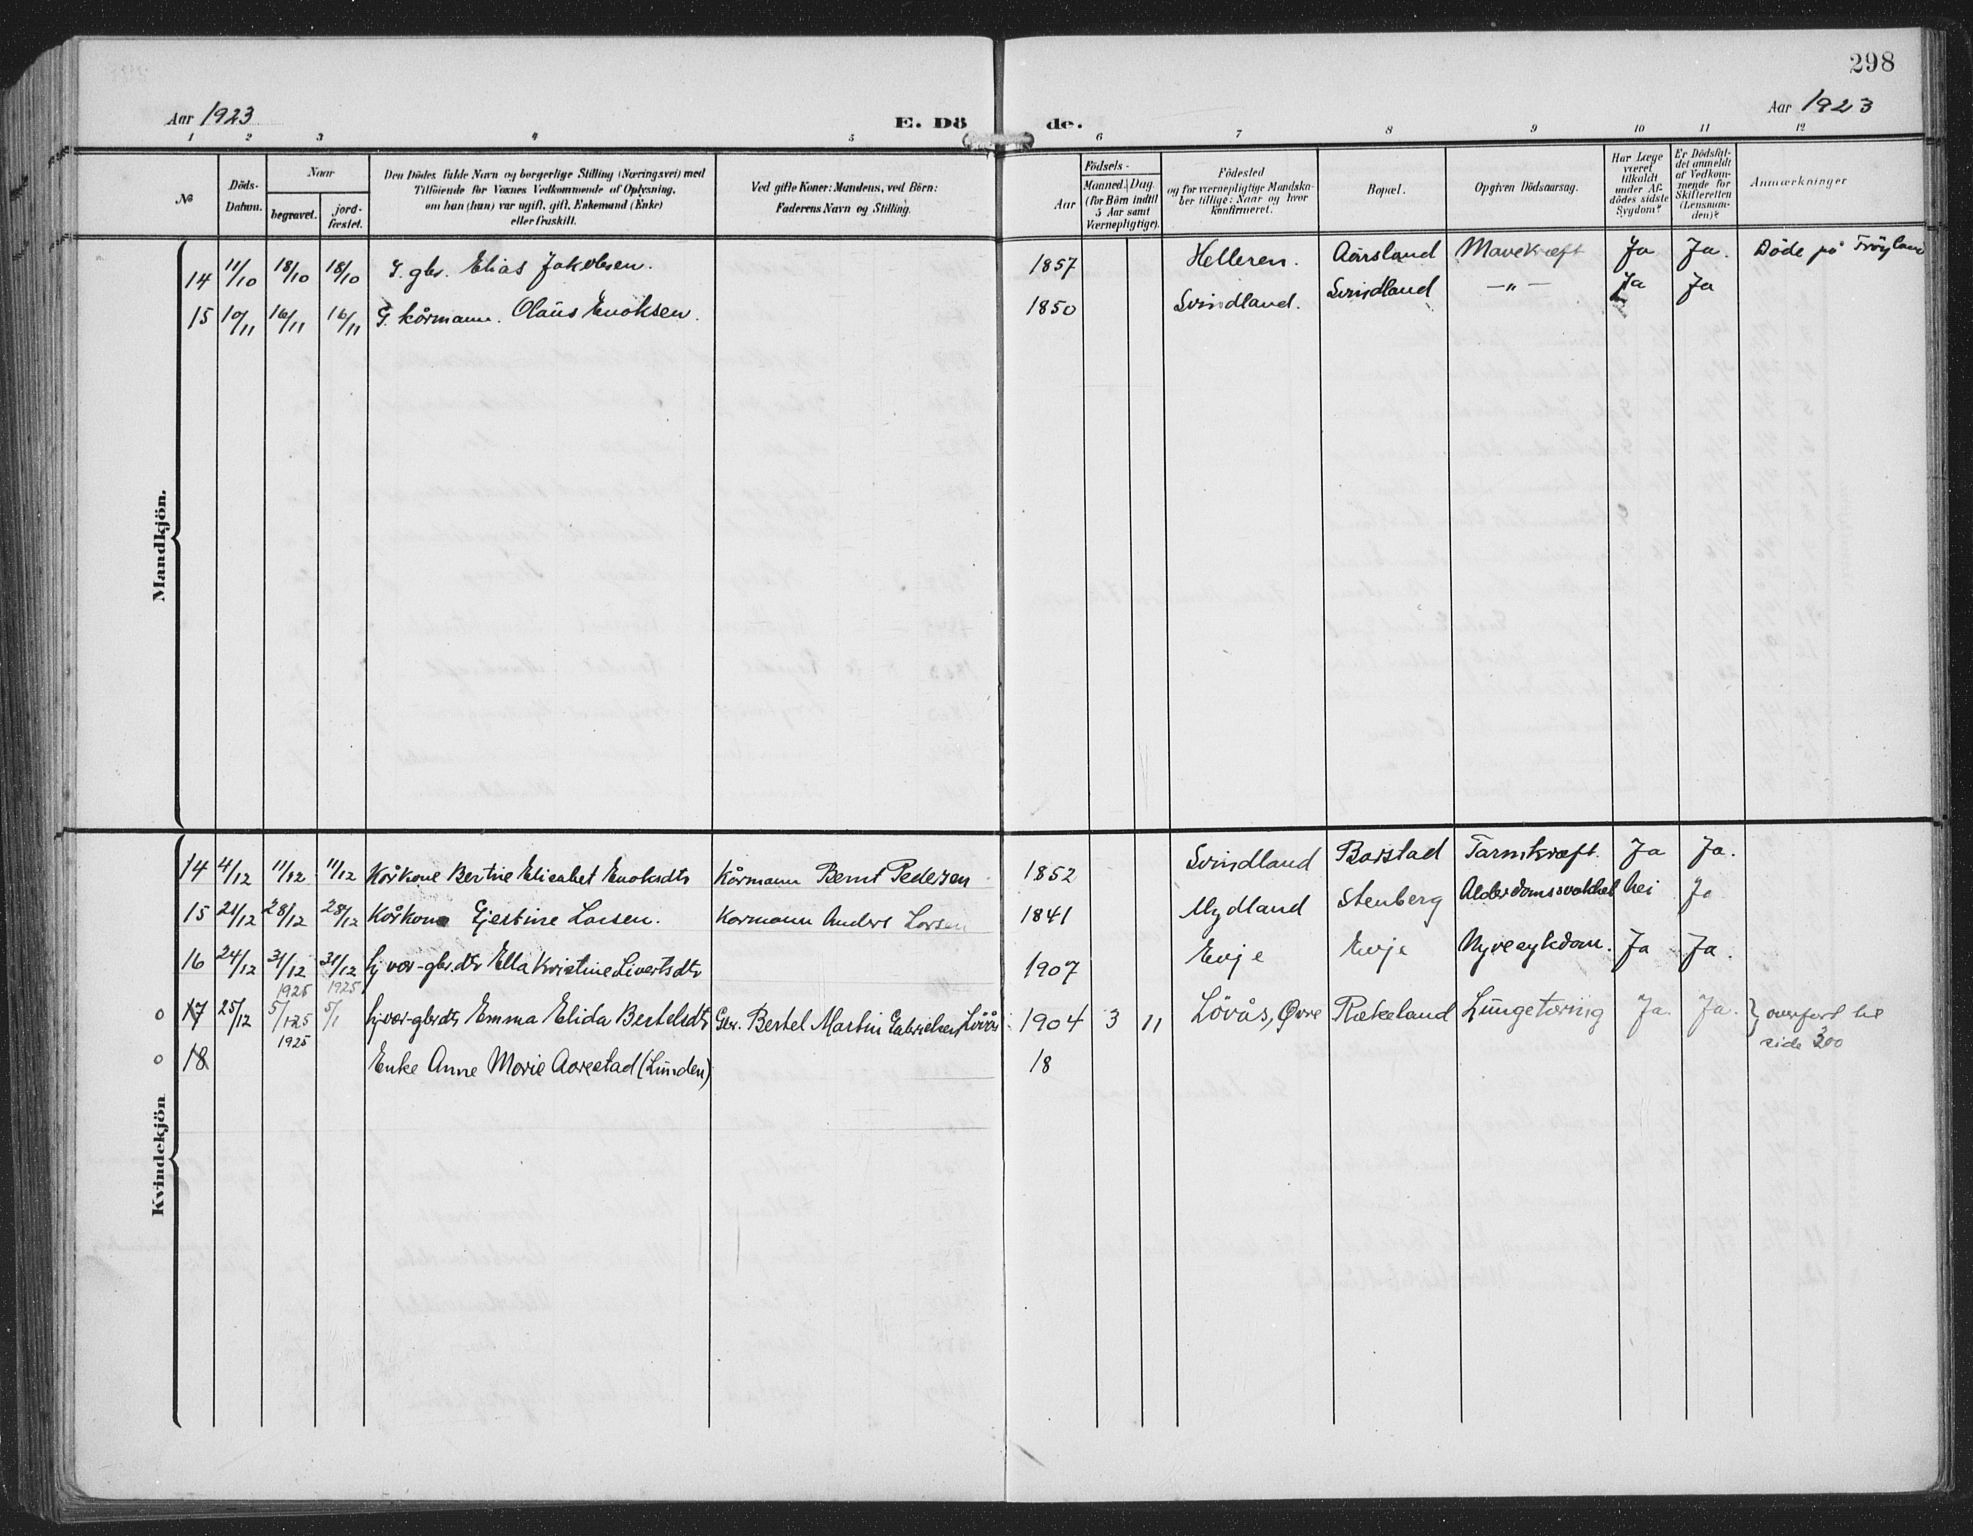 298
Aar 1923
E. Dö
de.
Aar 1923
1 2 3 4 5 6 7 8 9 10 11 12
№
Döds-
Datum.
Naar
begravet.
jord-
fæstet.
Den Dödes fulde Navn og borgerlige Stilling (Næringsvei) med
Tilföiende for Voxnes Vedkommende af Oplysning,
om han (hun) var ugift, gift, Enkemand (Enke)
eller fraskilt.
Ved gifte Koner: Mandens, ved Börn:
Faderens Navn og Stilling.
Födsels-
Aar
Maaned. Dag
(for Börn indtil
5 Aar samt
Værnepligtige).
Födested
og for værnepligtige Mandska-
ber tillige: Naar og hvor
konfirmeret.
Bopæl.
Opgiven Dödsaarsag.
Har Læge
været
tilkaldt
under Af-
dödes sidste
Sygdom?
Er Dödsfal-
det anmeldt
af Vedkom-
mende for
Skifteretten
(Lensman-
den)?
Anmærkninger
Mandkjön.
14 11/10 18/10 18/10 G. gbr. Elias Jakobsen. 1857 Helleren. Aarsland Mavekræft Ja Ja. Döde på Tröyland
15 10/11 16/11 16/11 G. kårmann. Olaus Enoksen. 1850 Svindland. Svindland —"— Ja Ja
Kvindekjön
14 4/12 11/12 11/12 Kårkone Bertine Elisabet Enoksdtr Kårmann Bernt Pedersen 1852 Svindland Barstad Tarmkræft. Ja Ja.
15 21/12 28/12 28/12 Kårkone Gjestine Larsen. Kormann Anders Larsen 1841 Mydland Stenberg Alderdomssvakhet Nei Ja
16 24/12 31/12 31/12 hj.vær. gbr.dtr Ella Kristine Sivertsdtr 1907 Evje Evje Nyresykdom. Ja Ja.
1925 1925
17 25/12 5/1-25 5/1 hj.vær-gbrdtr Emma Elida Bertelsdtr Gbr. Bertel Martin Gabrielsen Lövås 1904 3 11 Lövås, Øvre Rækeland Lungetæring Ja. Ja. } overført til
1925
side 300
18 Enke Anne Marie Aarestad (Lunden) 18